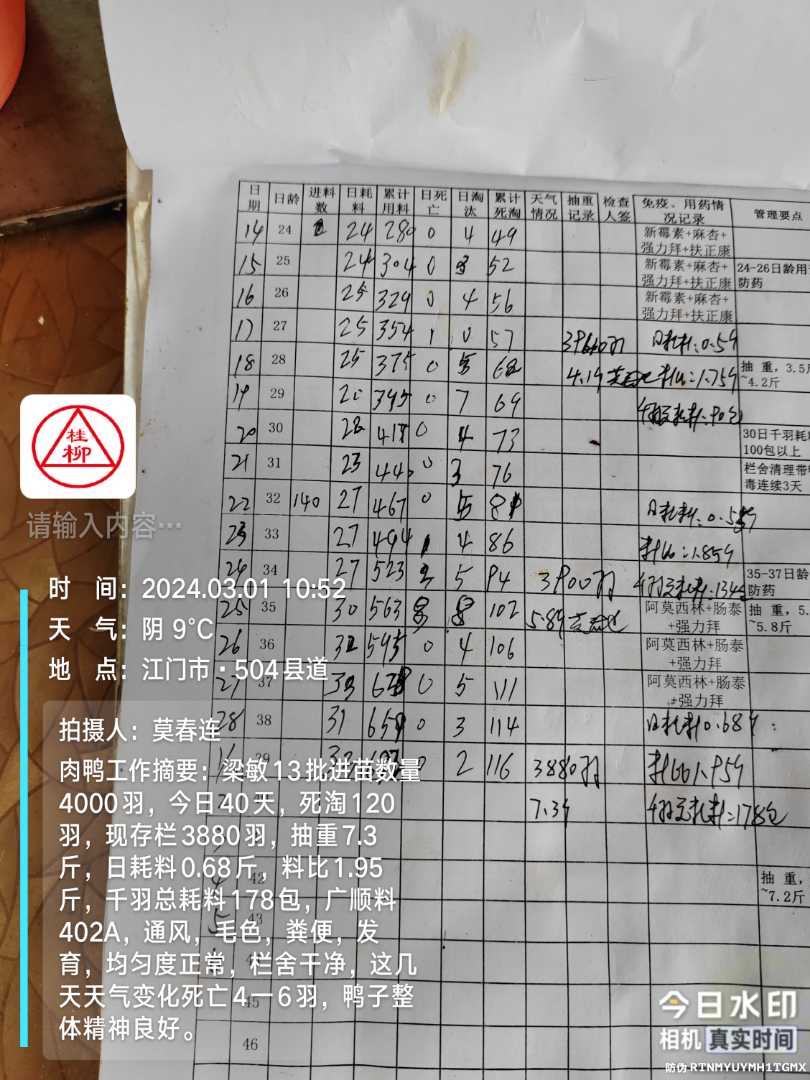 日期 日龄 进料数 日耗料 累计用料 日死亡 日淘汰 累计死淘 天气情况 抽重记录 检查人签 免疫、用药情况记录 管理要点
14 24 24 280 0 4 49 新霉素+麻杏+强力拜+扶正康
15 25 24 304 0 3 52 新霉素+麻杏+强力拜+扶正康 24-26日龄用 防药
16 26 25 329 0 4 56 新霉素+麻杏+强力拜+扶正康
17 27 25 354 1 0 57 日耗料:0.5斤
18 28 25 375 0 5 62 4.1斤 料比:1.75斤 抽重，3.5斤 ~4.2斤
19 29 20 395 0 7 69
20 30 0 4 73 30日千羽耗 100包以上
21 31 23 440 0 3 76 栏舍清理带 毒连续3天
22 32 140 27 467 0 5 81
23 33 27 494 1 4 86 料比:1.85斤
24 34 27 523 5 94 3900羽 35-37日龄 防药
25 35 30 563 8 102 5.8斤 阿莫西林+肠泰+强力拜 抽重，5. ~5.8斤
26 36 0 4 106 阿莫西林+肠泰+强力拜
27 37 0 5 111 阿莫西林+肠泰+强力拜
28 38 31 0 3 114 日耗料0.68斤
0 2 116 3880羽 料比1.95斤
7.3斤 千羽总耗料:178包
42 抽重， ~7.2斤
43
45
46
桂柳
请输入内容…
时 间：2024.03.01 10:52
天 气：阴 9℃
地 点：江门市·504县道
拍摄人：莫春连
肉鸭工作摘要：梁敏13批进苗数量
4000羽，今日40天，死淘120
羽，现存栏3880羽，抽重7.3
斤，日耗料0.68斤，料比1.95
斤，千羽总耗料178包，广顺料
402A，通风，毛色，粪便，发
育，均匀度正常，栏舍干净，这几
天天气变化死亡4一6羽，鸭子整
体精神良好。
今日水印
相机 真实时间
防伪 RTNMYUYMH1TGMX